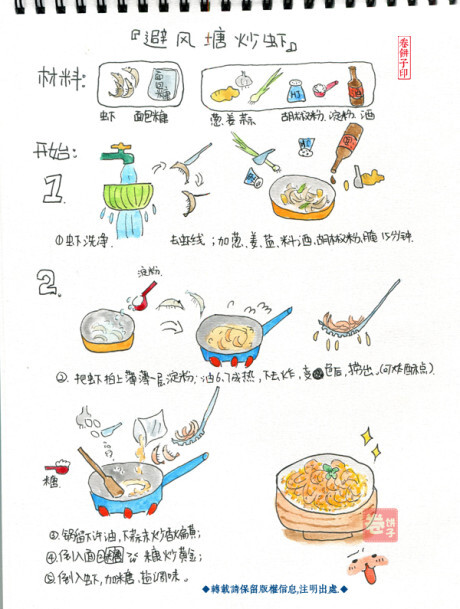 『避风塘炒虾』
卷餅子印
材料:
虾 面包糠
葱姜蒜 胡椒粉、淀粉、酒
开始:
1.
①虾洗净. 去虾线；加葱、姜、盐、料酒、胡椒粉，腌15分钟.
2.
淀粉.
②. 把虾拍上薄薄一层淀粉；油6、7成热，下去炸，变色后，捞出，(可炸酥点).
糖
③锅留下许油，下蒜末炒香煸黄；
④倒入面包糠 糠炒黄金；
⑤倒入虾，加糖，盐调味。
卷
餅子
◆轉載請保留版權信息,注明出處◆